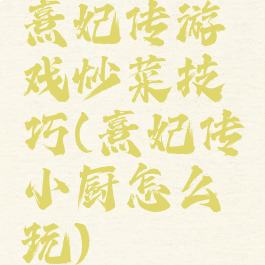 熹妃传游
戏炒菜技
巧(熹妃传
小厨怎么
玩)